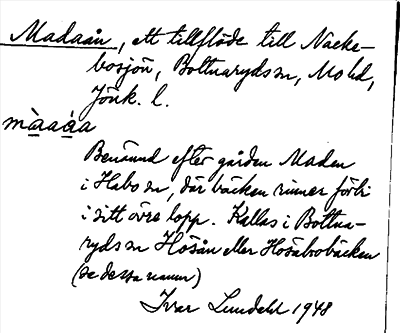 Madaån, ett tillflöde till Nacke-
bosjön, Bottnaryds sn, Mo hd,
Jönk. l.
màaàa
Benämnd efter gården Maden
i Habo sn, där bäcken rinner förbi
i sitt övre lopp. Kallas i Bottna-
ryds sn Hösån eller Hosabobäcken
(se dessa namn)
Ivar Lundahl 1948